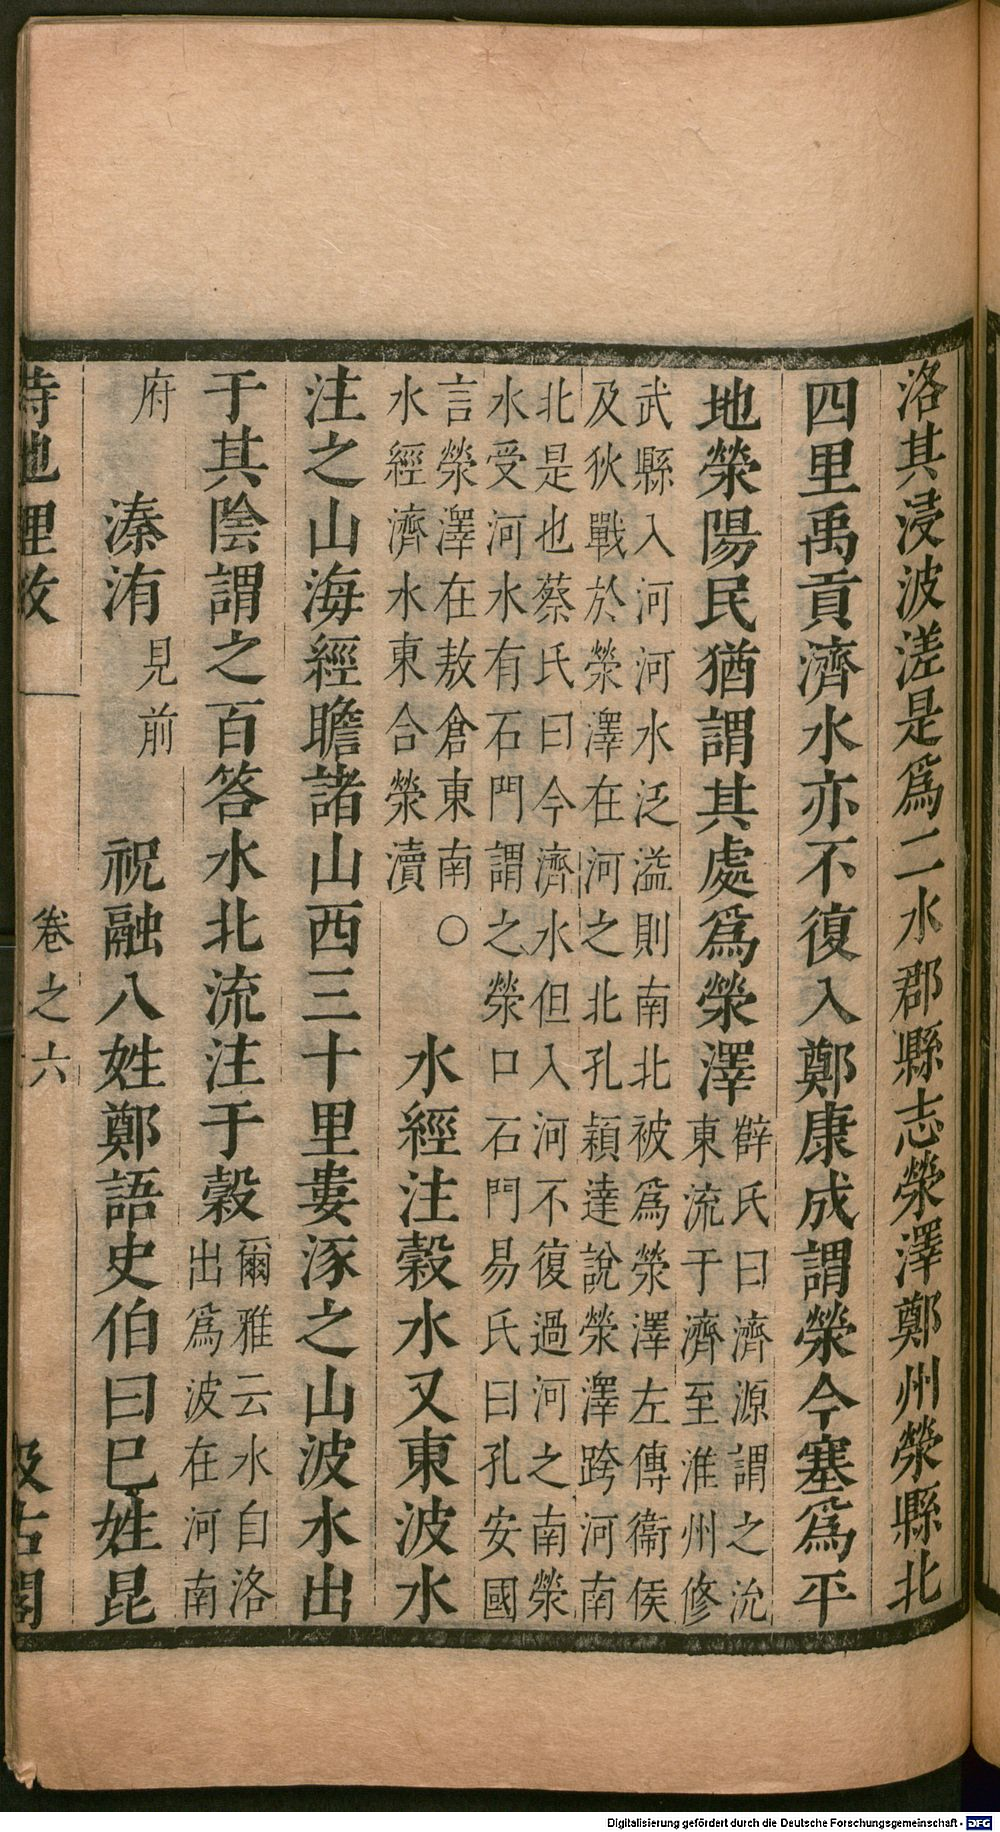 洛其浸波溠是爲二水郡縣志榮澤鄭州榮縣北
四里禹貢濟水亦不復入鄭康成謂榮今塞爲平
地榮陽民猶謂其處爲榮澤
薛氏曰濟源謂之沇
東流于濟至淮州修
武縣入河河水泛溢則南北被爲榮澤左傳衞侯
及狄戰於榮澤在河之北孔穎達說榮澤跨河南
北是也蔡氏曰今濟水但入河不復過河之南榮
水受河水有石門謂之榮口石門易氏曰孔安國
言榮澤在敖倉東南○
水經濟水東合榮瀆
水經注穀水又東波水
注之山海經瞻諸山西三十里婁涿之山波水出
于其陰謂之百答水北流注于穀
爾雅云水自洛
出爲波在河南
府
溱洧
見前
祝融八姓鄭語史伯曰巳姓昆
詩地理攷
卷之六
汲古閣
Digitalisierung gefördert durch die Deutsche Forschungsgemeinschaft - DFG